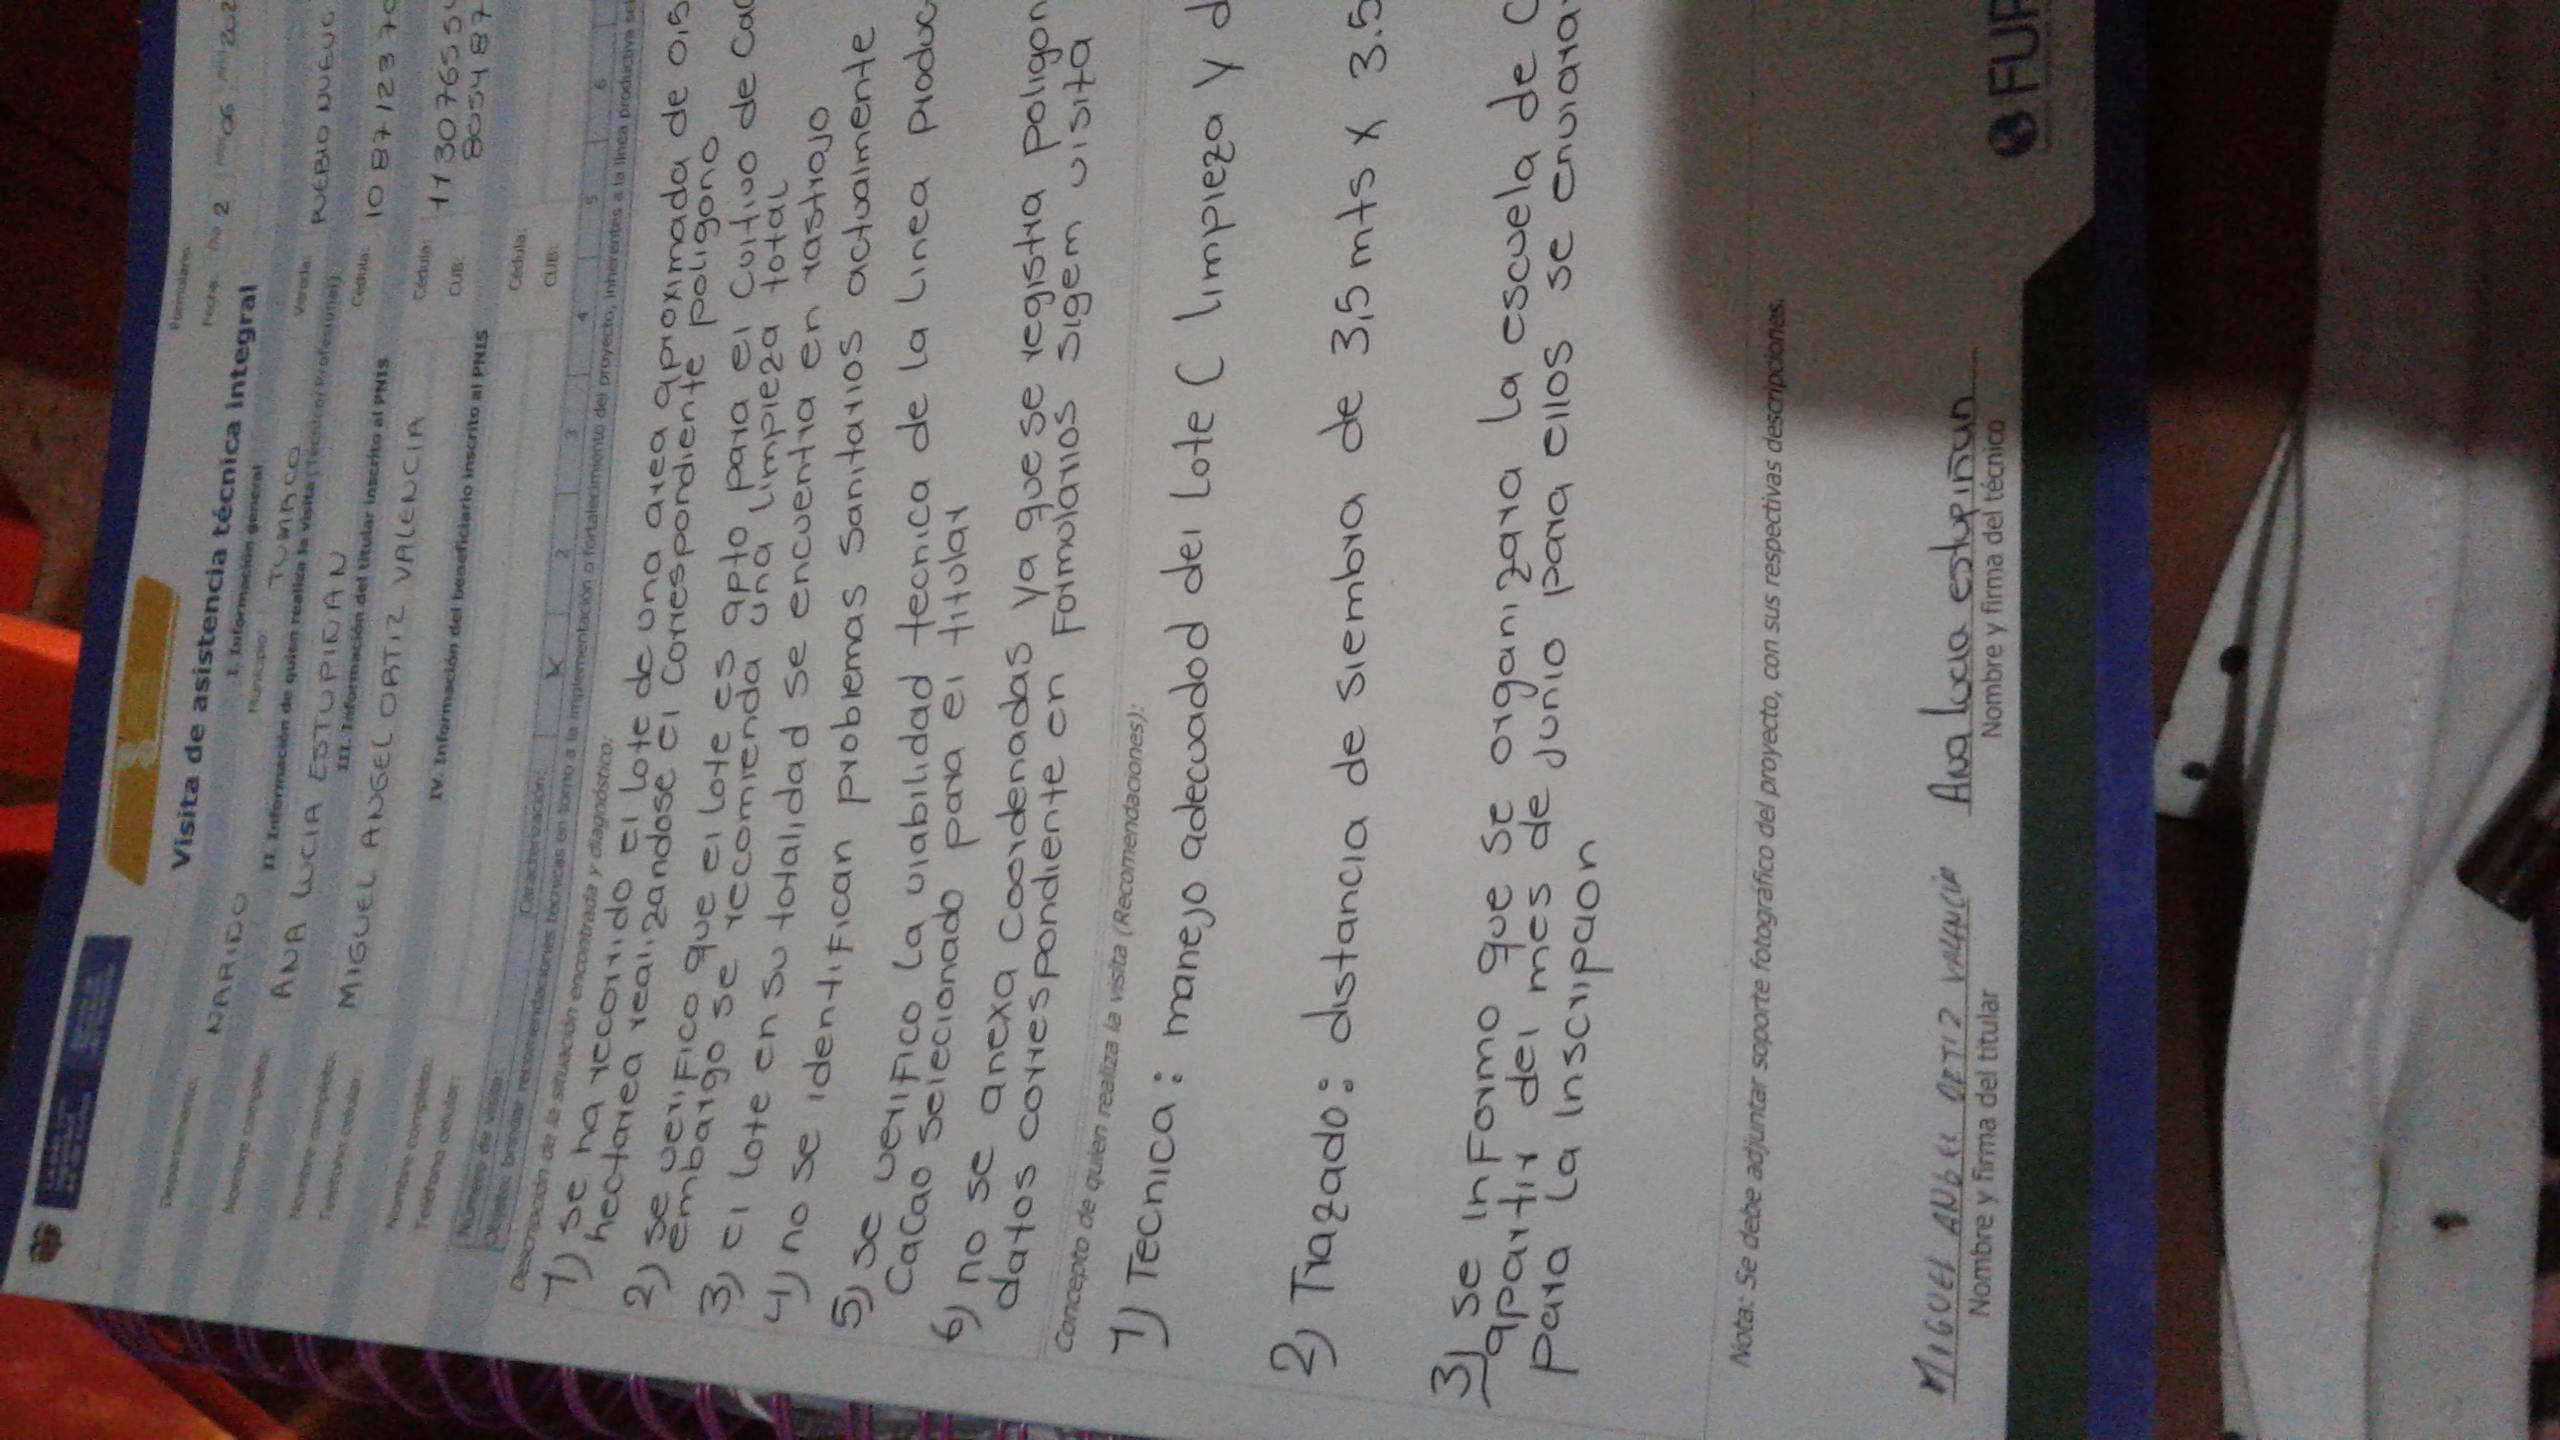 Formulario:
Visita de asistencia técnica integral
Fecha: 2 06 202
I. Información general
Departamento: NARIDO Municipio: TUMACO Vereda: PUEBLO NUEVO
II. Información de quien realiza la visita (Técnico/Profesional)
Nombre completo: ANA LUCIA ESTUPIÑAN Cédula: 10 87 123 70
III. Información del titular inscrito al PNIS
Nombre completo: MIGUEL ANGEL ORTIZ VALENCIA Cédula: 11 30 7655
Teléfono celular: CUB: 8054 87
IV. Información del beneficiario inscrito al PNIS
Nombre completo: Cédula:
Teléfono celular: CUB:
Número de visita: Caracterización: X 2 3 4 5 6
Objeto: brindar recomendaciones técnicas en torno a la implementación o fortalecimiento del proyecto, inherentes a la línea productiva
Descripción de la situación encontrada y diagnóstico:
1) se ha recorrido el lote de una area aproximada de 0,5
hectarea realizandose el correspondiente poligono
2) se verifico que el lote es apto para el cultivo de
embargo se recomienda una limpieza total
3) el lote en su totalidad se encuentra en rastrojo
4) no se identifican problemas sanitarios actualmente
5) se verifico la viabilidad tecnica de la linea
cacao selecionado para el titular
6) no se anexa coordenadas ya que se registra
datos correspondiente en formularios sigem visita
Concepto de quien realiza la visita (Recomendaciones):
1) Tecnica: manejo adecuadod del lote ( limpieza y d
2) Trazado: distancia de siembra de 3,5 mts x 3.5
3) se informo que se organizara la escuela de
apartir del mes de junio para ellos se
para la inscripcion
Nota: Se debe adjuntar soporte fotográfico del proyecto, con sus respectivas descripciones.
MIGUEL ANGEL ORTIZ VALANCIA Ana lucia estupiñan
Nombre y firma del titular Nombre y firma del técnico